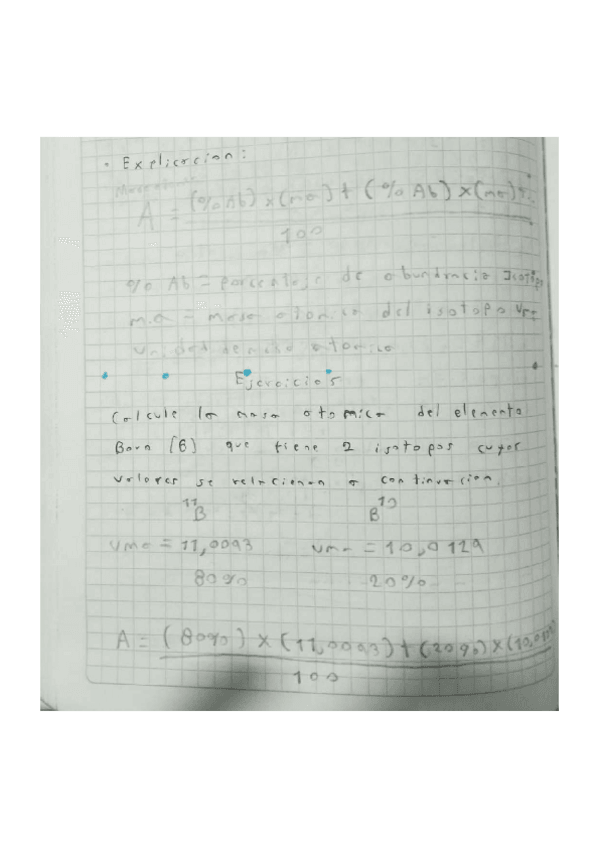 • Explicacion:
A = (% Ab) x (ma) + (% Ab) x (ma)
100
% Ab = porcentaje de abundancia Isotop
m.a = masa atomica del isotopo
unidad de masa atomica
Ejercicios
Calcule la masa atomica del elemento
Boro (B) que tiene 2 isotopos cuyos
valores se relacionan a continuacion.
11B B10
uma = 11,0093 uma = 10,0129
80% 20%
A = (80%) x (11,0093) + (20%) x (10,0129)
100